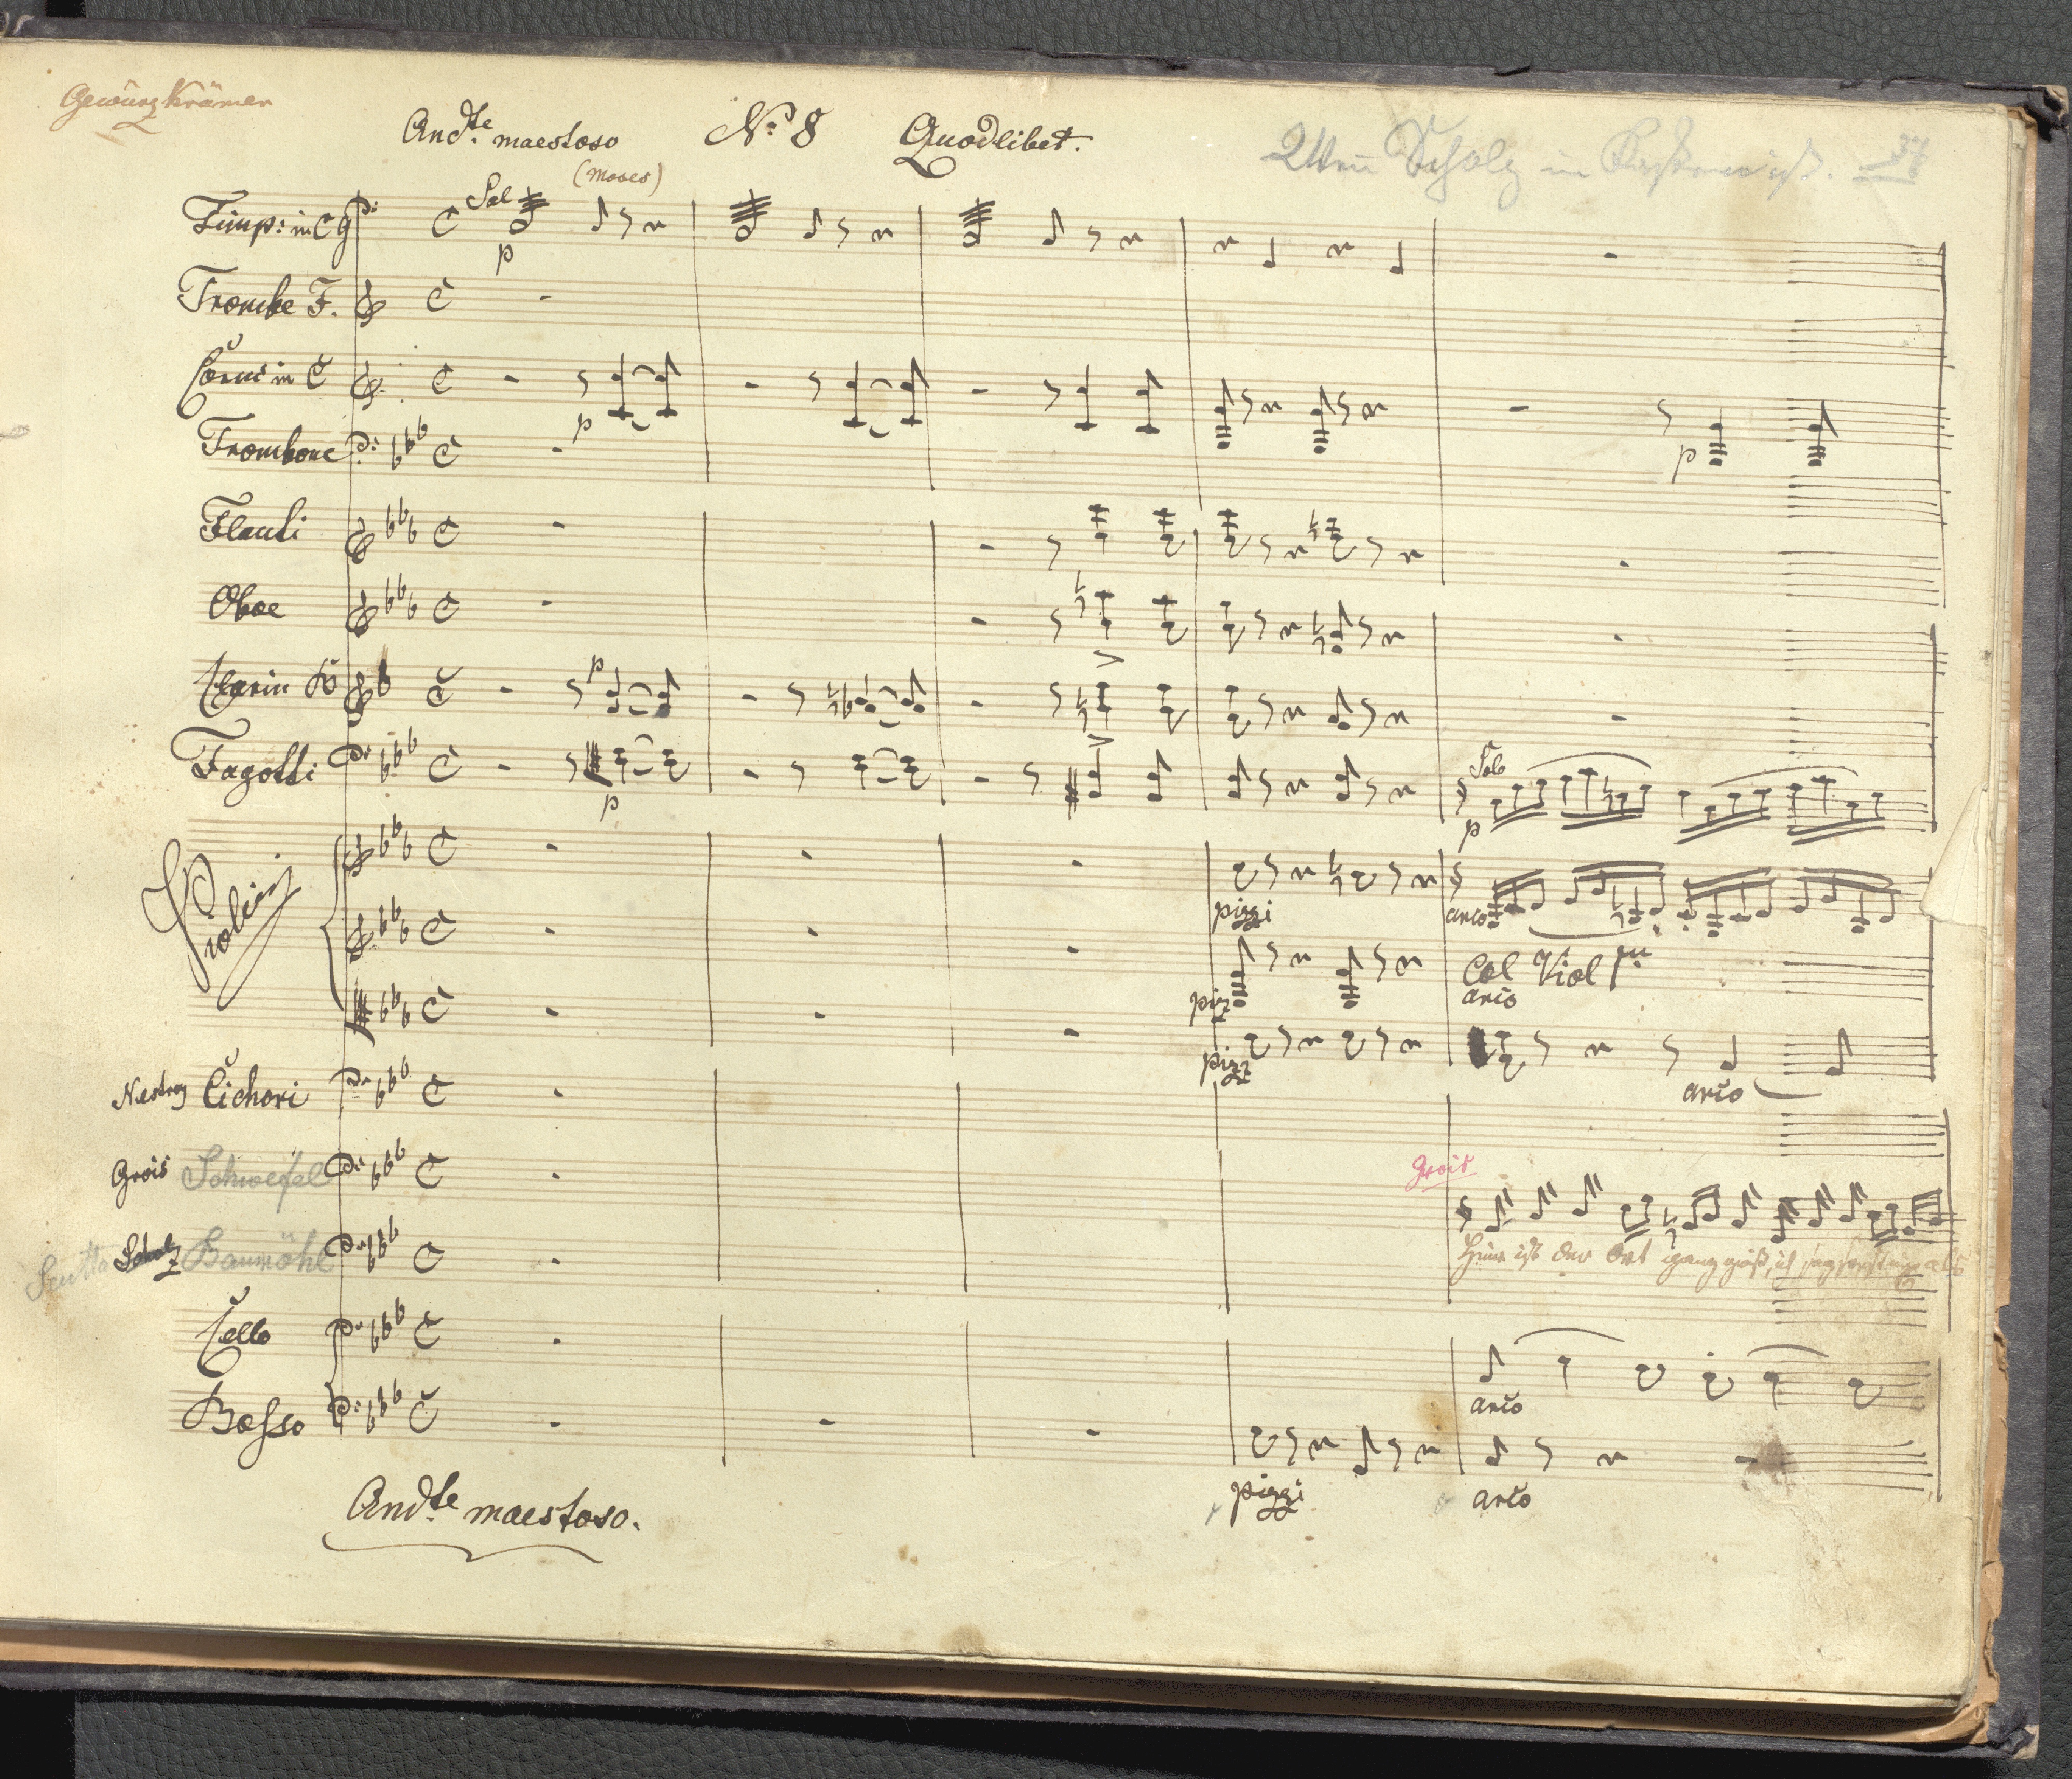 Gewürzkrämer
And.te maestoso No: 8 Quodlibet.
(Moses)
Scholz in 37
Timp: in C g Sol p
Trombe F.
Corni in C p
Trombone p
Flauti
Oboe
Clarin B p
Fagotti p Solo p
Violini pizzi arco
pizz Col Viol 1mo arco
pizz arco
Nestroy Cichori
Grois Schwefel Grois
Scutta Scholz Baumöhl Hier ist der Ort ganz gwiß, ich als
Cello arco
Basso pizzi arco
And.te maestoso.